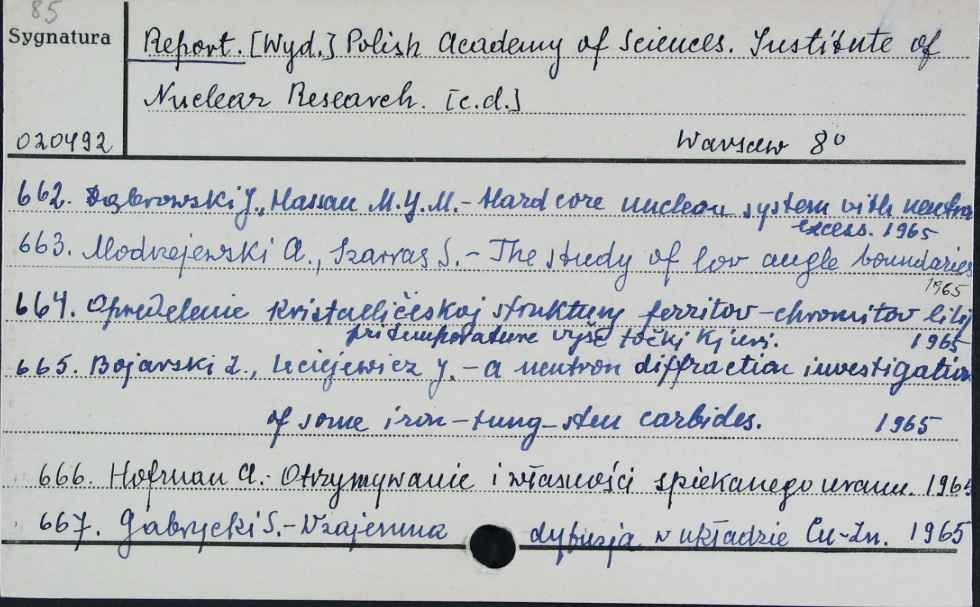 85
Sygnatura
Report. [Wyd.] Polish Academy of Sciences. Institute of
Nuclear Research. [c.d.]
020492
Warsaw 8º
662. Dąbrowski J., Hassan M.Y.M. - Hard core nucleon system with neutron
excess. 1965
663. Modrzejewski A., Szarras S. - The study of low angle boundaries
1965
664. Opredelenie kristalličeskoj struktury ferritov-chromitov litij
pri temperature vyše točki Kjuri. 1965
665. Bojarski Z., Leciejewicz J. - A neutron diffraction investigation
of some iron-tung-sten carbides. 1965
666. Hofman A. - Otrzymywanie i własności spiekanego uranu. 1965
667. Gabrycki S. - Wzajemna dyfuzja w układzie Cu-Zn. 1965